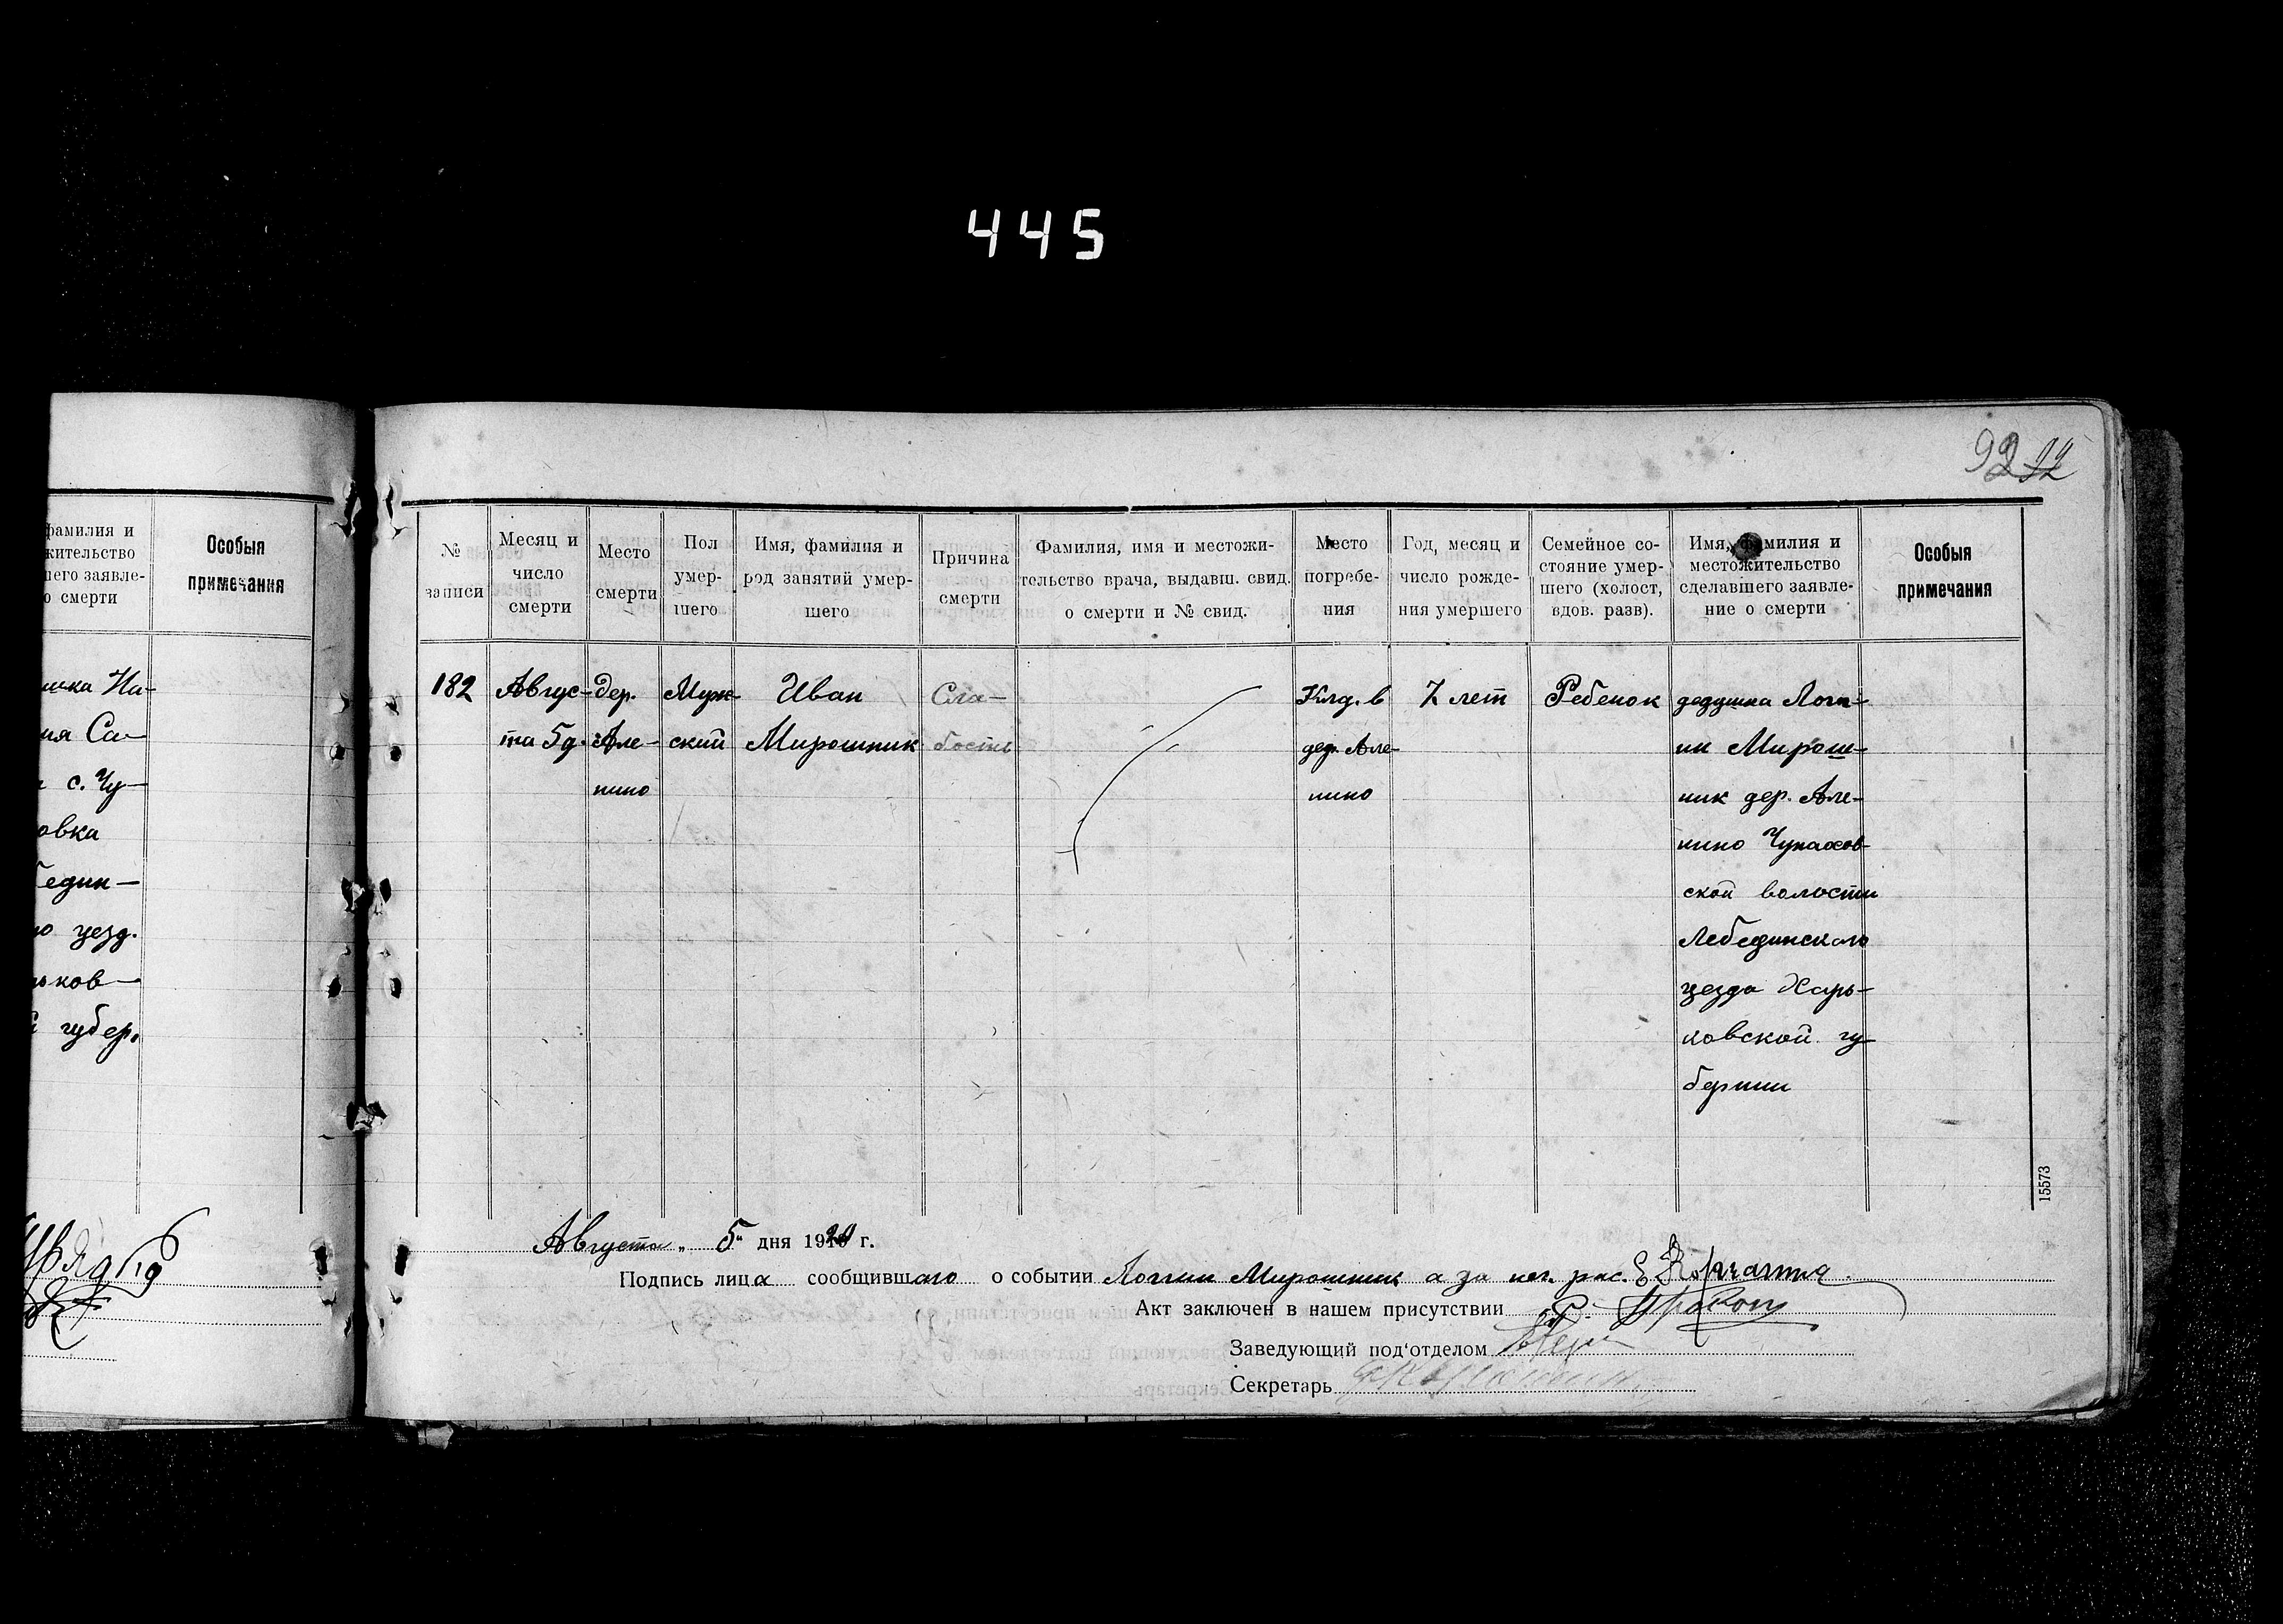 445
92 22
фамилия и
жительство
шего заявле-
о смерти
Особыя
примечания
шка На-
ия Са-
с. Чу-
овка
бедин-
го уезд.
ьков-
й губер.
№
записи
Месяц и
число
смерти
Место
смерти
Пол
умер-
шего
Имя, фамилия и
род занятий умер-
шего
Причина
смерти
Фамилия, имя и местожи-
тельство врача, выдавш. свид.
о смерти и № свид.
Место
погребе-
ния
Год, месяц и
число рожде-
ния умершего
Семейное со-
стояние умер-
шего (холост,
вдов. разв).
Имя, фамилия и
местожительство
сделавшего заявле-
ние о смерти
Особыя
примечания
182
Авгус-
та 5д.
дер.
Але-
нино
Муж-
ский
Иван
Мирошник
Сла-
бость
Клд. в
дер. Але-
нино
7 лет
Ребенок
дедушка Логи-
ин Мирош-
ник дер. Але-
нино Чупахов-
ской волости
Лебединского
уезда Харь-
ковской гу-
бернии
15573
Августа „5" дня 1920 г.
Подпись лица сообщившаго о событии Логгин Мирошник а за нег. рас. Е
Акт заключен в нашем присутствии
Заведующий под‘отделом
Секретарь